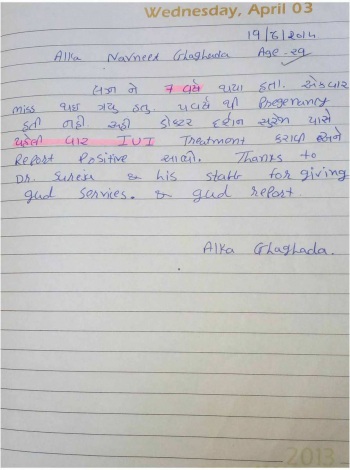 Wednesday, April 03
19/6/2014
Alka Navneet Ghaghada Age - 29
લગ્ન ને 7 વર્ષ થયા હતા. એકવાર
miss થઇ ગયુ હતુ. પ વર્ષ થી Pregenancy
હતી નહી અહી ડોક્ટર દર્શન સુરેજા પાસે
પહેલી વાર IUI Treatment કરાવી અને
Report Positive આવ્યો. Thanks to
Dr. Sureja & his stabb for giving
gud services. & gud report.
Alka Ghaghada.
2013